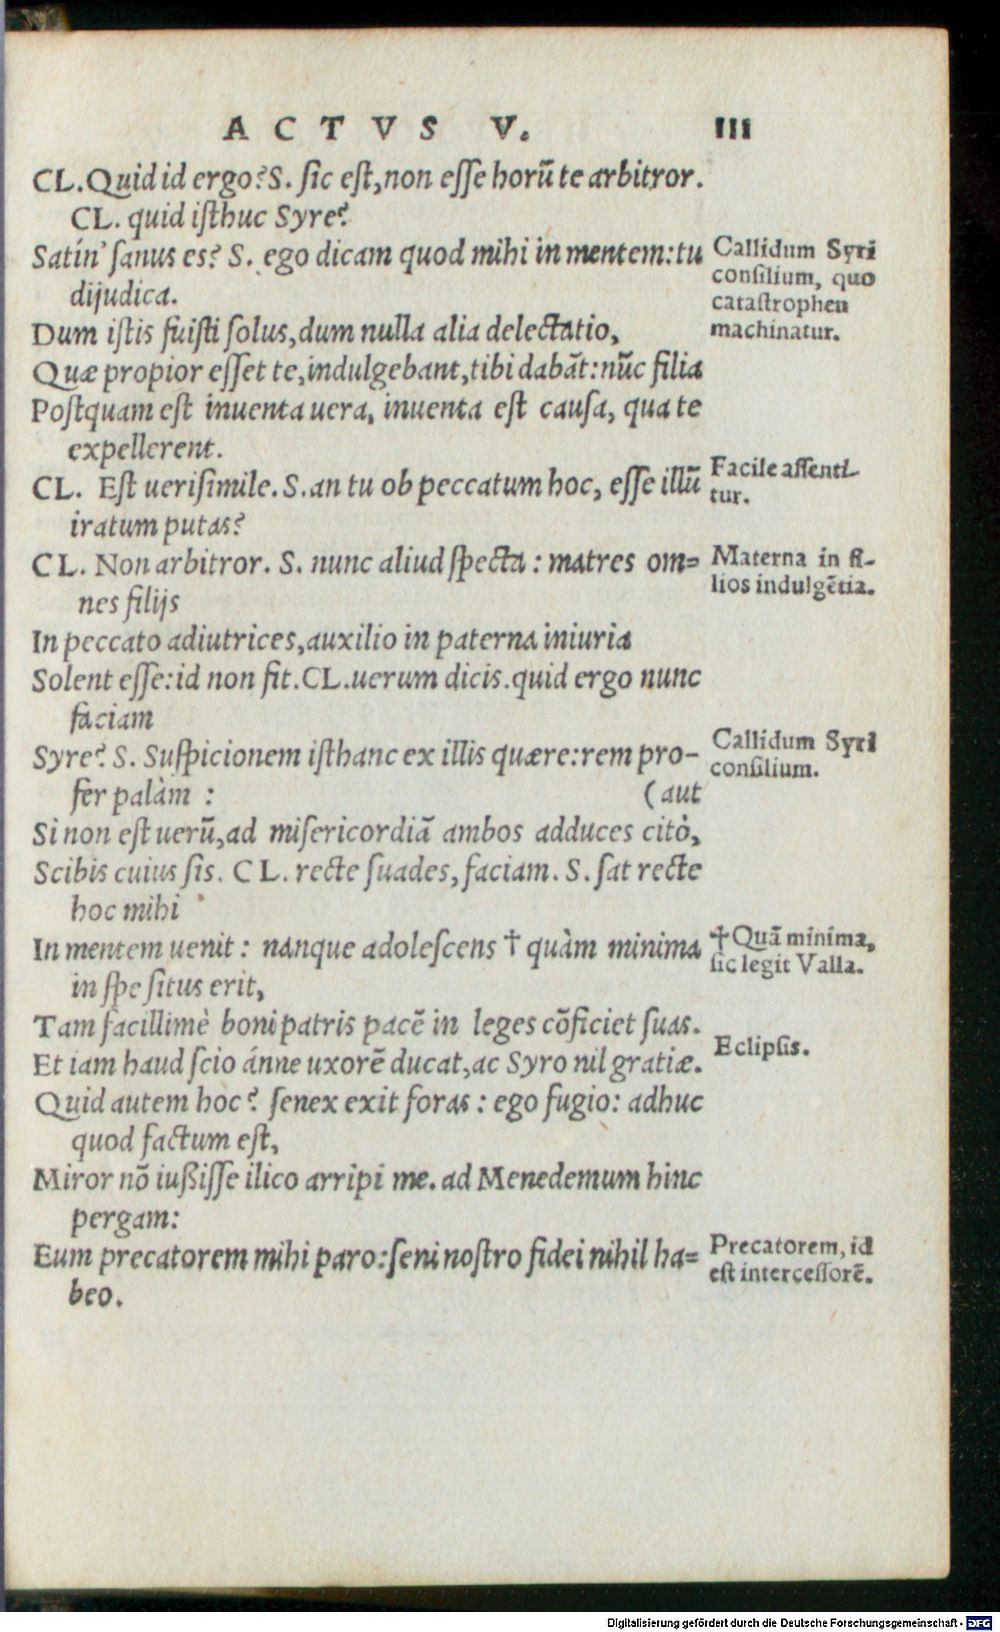 ACTVS V. 111
CL. Quid id ergo? S. sic est, non esse horū te arbitror.
CL. quid isthuc Syre?
Satin' sanus es? S. ego dicam quod mihi in mentem: tu
dijudica.
Callidum Syri
consilium, quo
catastrophen
machinatur.
Dum istis fuisti solus, dum nulla alia delectatio,
Quæ propior esset te, indulgebant, tibi dabāt: nūc filia
Postquam est inuenta uera, inuenta est causa, qua te
expellerent.
CL. Est uerisimile. S. an tu ob peccatum hoc, esse illū
iratum putas?
Facile assenti-
tur.
CL. Non arbitror. S. nunc aliud specta: matres om=
nes filijs
Materna in fi-
lios indulgētia.
In peccato adiutrices, auxilio in paterna iniuria
Solent esse: id non fit. CL. uerum dicis. quid ergo nunc
faciam
Syre? S. Suspicionem isthanc ex illis quære: rem pro-
fer palàm : (aut
Callidum Syri
consilium.
Si non est uerū, ad misericordiā ambos adduces citò,
Scibis cuius sis. CL. recte suades, faciam. S. sat recte
hoc mihi
In mentem uenit: nanque adolescens † quàm minima
in spe situs erit,
†Quā minima,
sic legit Valla.
Tam facillimè boni patris pacē in leges cōficiet suas.
Et iam haud scio ánne uxorē ducat, ac Syro nil gratiæ.
Eclipsis.
Quid autem hoc? senex exit foras: ego fugio: adhuc
quod factum est,
Miror nō iußisse ilico arripi me. ad Menedemum hinc
pergam:
Eum precatorem mihi paro: seni nostro fidei nihil ha=
beo.
Precatorem, id
est intercessorē.
Digitalisierung gefördert durch die Deutsche Forschungsgemeinschaft - DFG